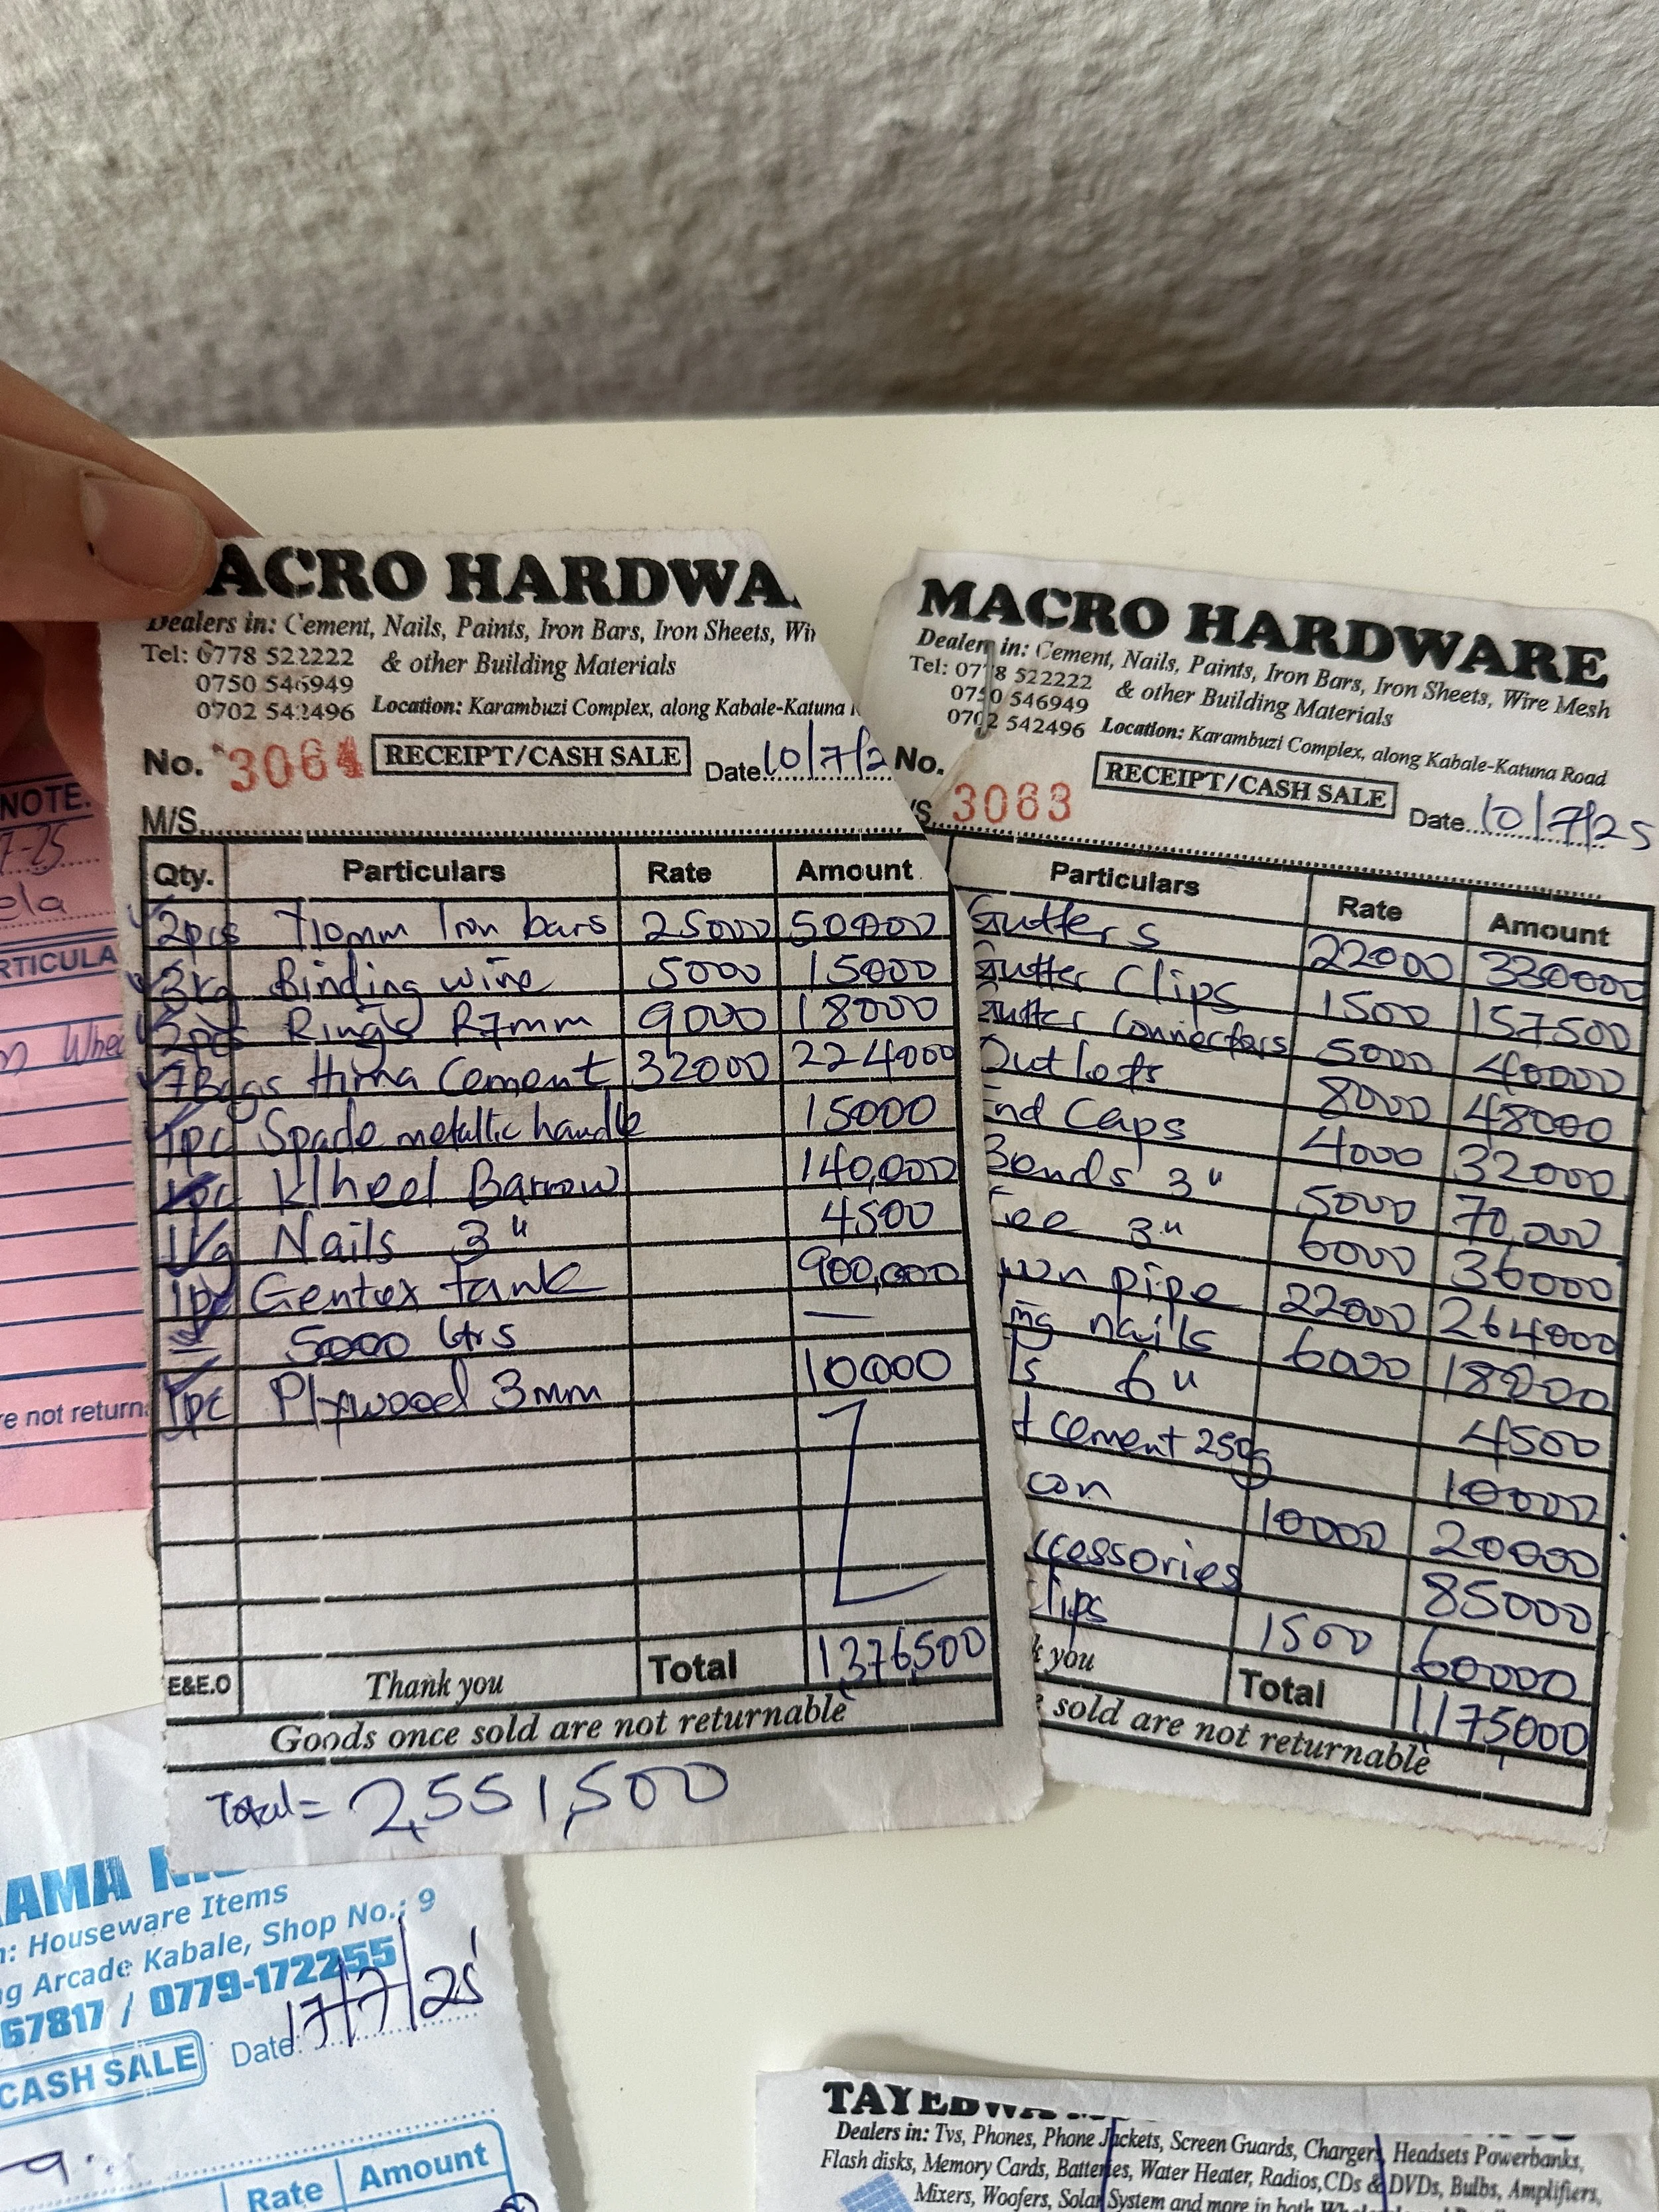 ACRO HARDWA
Dealers in: Cement, Nails, Paints, Iron Bars, Iron Sheets,
Tel: 0778 522222 & other Building Materials
0750 546949
0702 542496 Location: Karambuzi Complex, along Kabale-Katuna
No. 3064 RECEIPT/CASH SALE Date 10/7/2
M/S
Qty. Particulars Rate Amount
2pcs T10mm Iron bars 25000 50000
3kg Binding wire 5000 15000
2pcs Rings R7mm 9000 18000
7Bags Hima Cement 32000 224000
1pc Spade metallic handle 15000
1pc Wheel Barrow 140,000
1kg Nails 3" 4500
1pc Gentex tank 900,000
5000 Ltrs —
1pc Plywood 3mm 10000
E&E.O Thank you Total 1,376,500
Goods once sold are not returnable
Total = 2,551,500
MACRO HARDWARE
Dealers in: Cement, Nails, Paints, Iron Bars, Iron Sheets, Wire Mesh
Tel: 0778 522222 & other Building Materials
0750 546949
0702 542496 Location: Karambuzi Complex, along Kabale-Katuna Road
No. 3063 RECEIPT/CASH SALE Date 10/7/25
/S.
Particulars Rate Amount
Gutters 22000 330000
Gutter Clips 1500 157500
Gutter Connectors 5000 40000
Outlets 8000 48000
End Caps 4000 32000
Bends 3" 5000 70,000
Tee 3" 6000 36000
pipe 22000 264000
nails 6000 18000
ls 6" 4500
t cement 250g 10000
con 10000 20000
ccessories 85000
lips 1500 60000
k you Total 1,175000
sold are not returnable
NOTE.
7-25
ela
RTICULA
Whee
re not return
AMA
n: Houseware Items
g Arcade Kabale, Shop No.: 9
67817 / 0779-172255
CASH SALE Date: 17/7/25
Rate Amount
Dealers in: Tvs, Phones, Phone Jackets, Screen Guards, Chargers, Headsets Powerbanks,
Flash disks, Memory Cards, Batteries, Water Heater, Radios, CDs & DVDs, Bulbs, Amplifiers,
Mixers, Woofers, Solar System and more in both